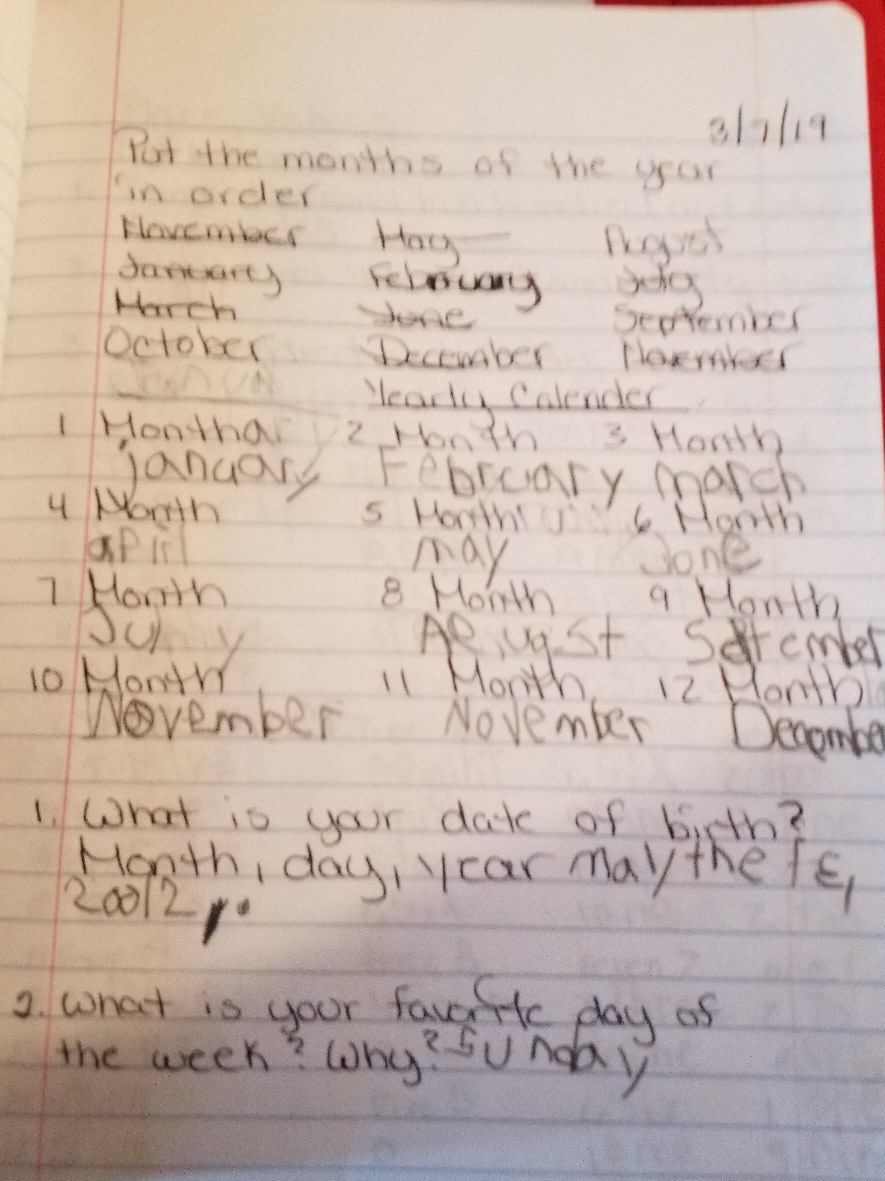 3/7/19
Put the months of the year
in order
November May August
January February July
March June September
October December November
Yearly Calender
1 Month 2 Month 3 Month
january February march
4 Month 5 Month 6 Month
apirl may June
7 Month 8 Month 9 Month
July August September
10 Month 11 Month 12 Month
November November December
1. What is your date of birth?
Month, day, year may the
2. What is your favorite day of
the week? Why? Sunday